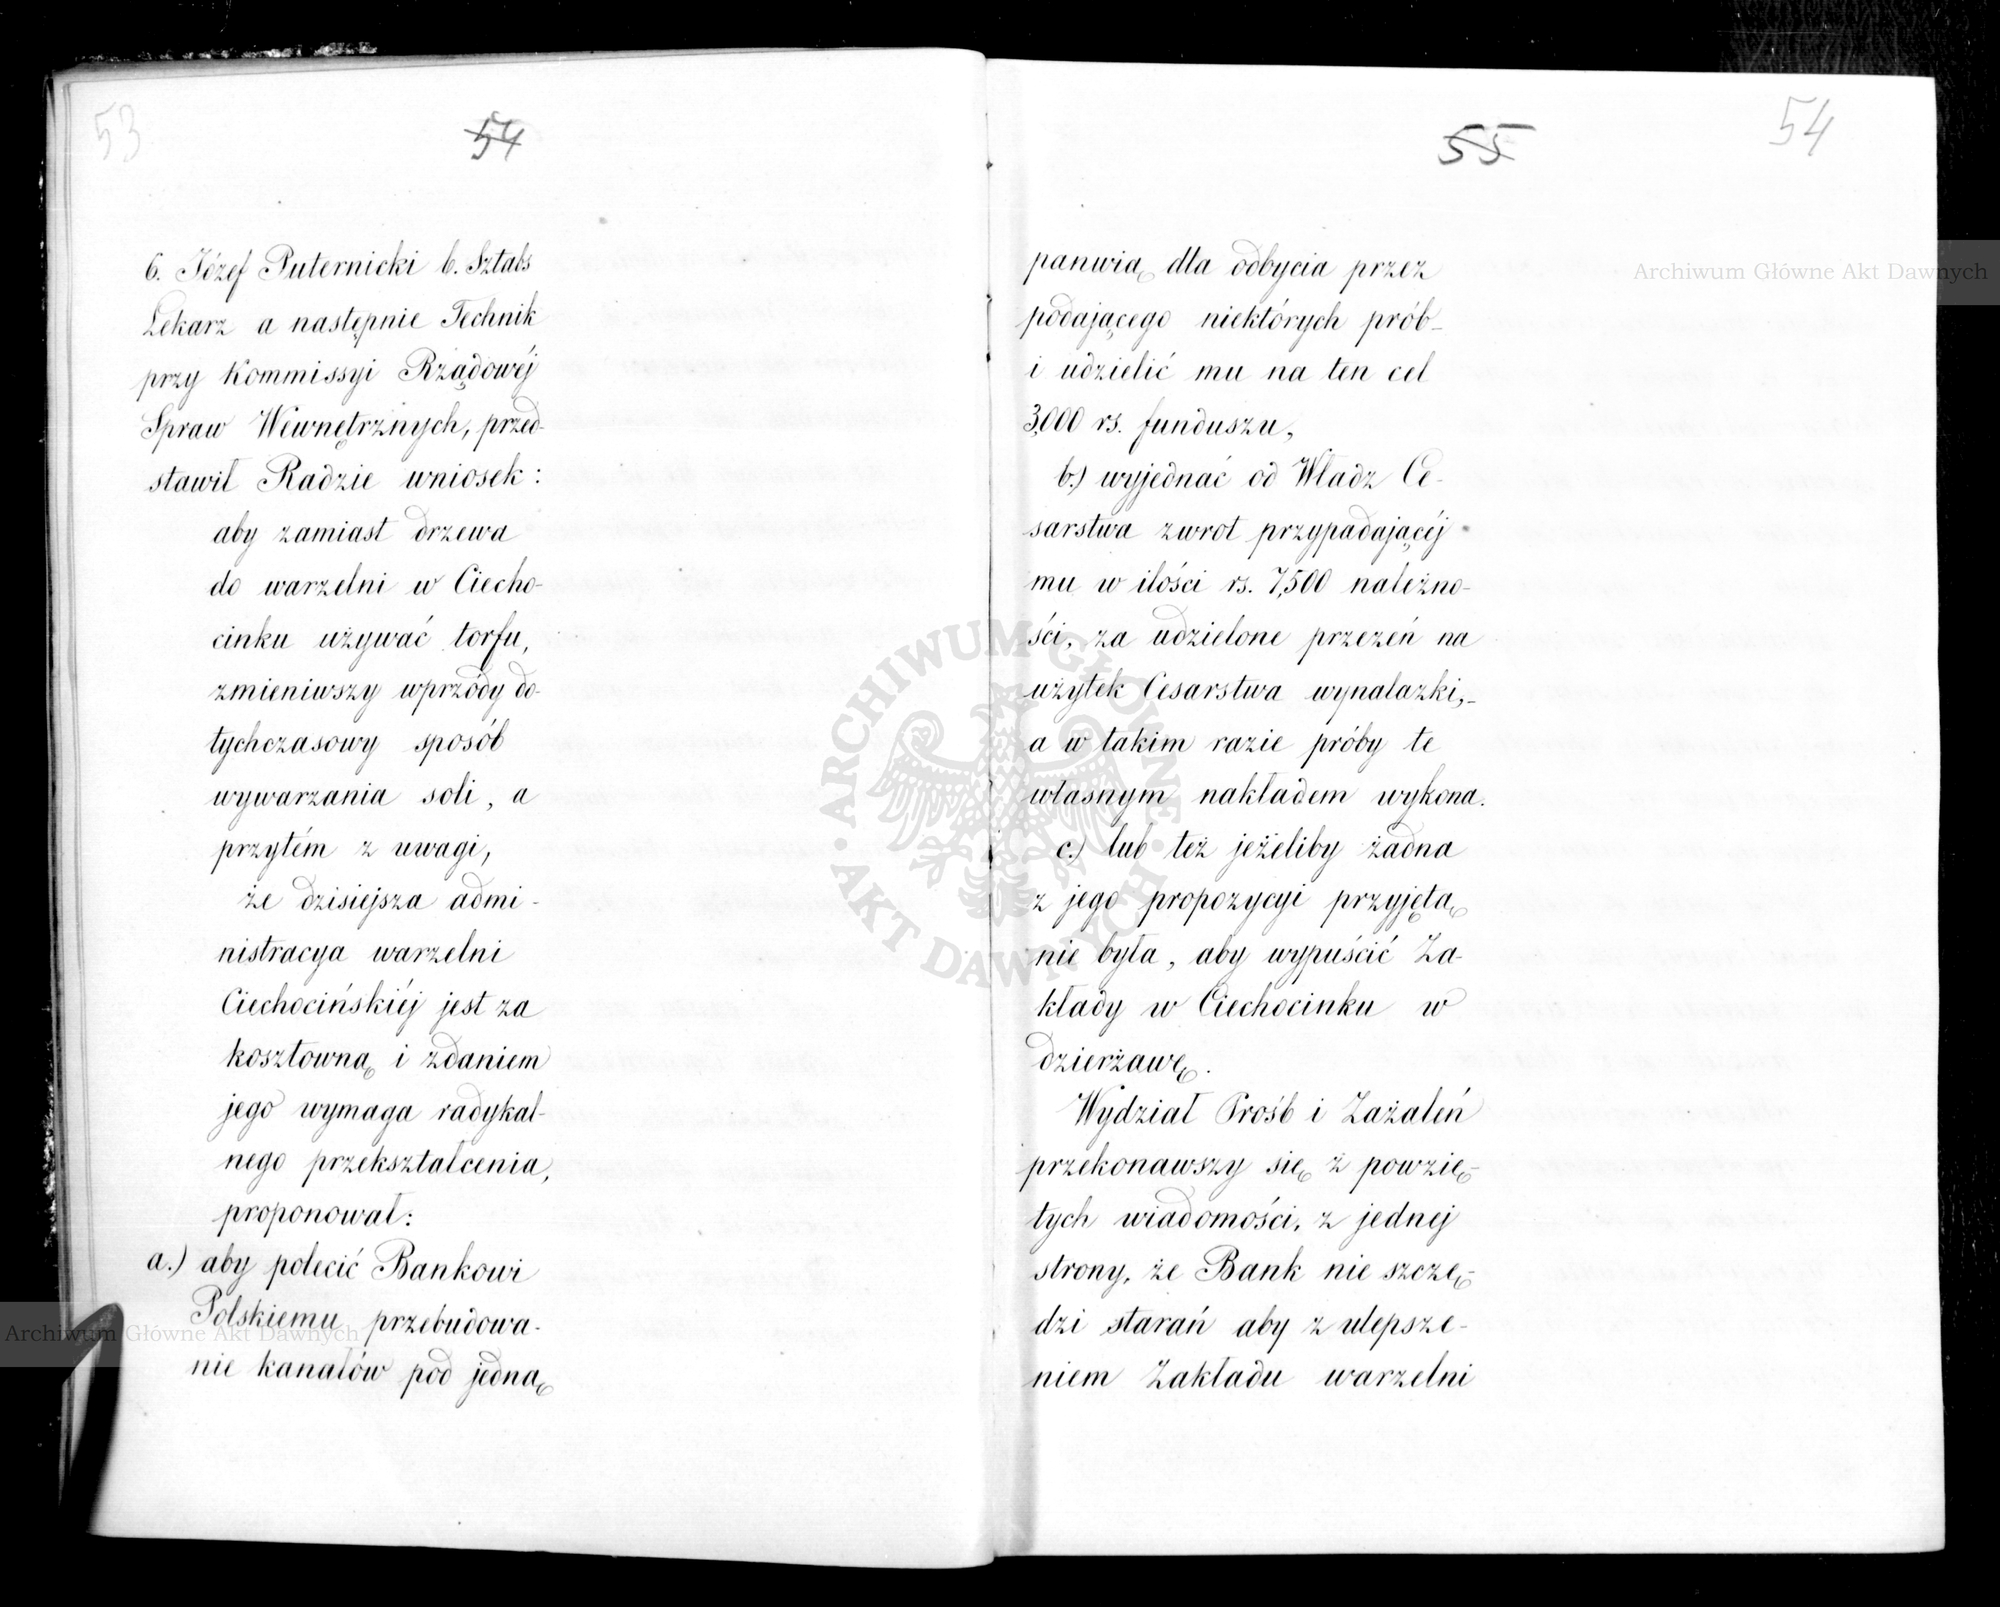 53
54
6. Józef Puternicki b. Sztabs
Lekarz a następnie Technik
przy Kommissyi Rządowéj
Spraw Wewnętrznych, przed-
stawił Radzie wniosek:
aby zamiast drzewa
do warzelni w Ciecho-
cinku używać torfu,
zmieniwszy wprzódy do-
tychczasowy sposób
wywarzania soli, a
przytém z uwagi,
że dzisiejsza admi-
nistracya warzelni
Ciechocińskiéj jest za
kosztowną i zdaniem
jego wymaga radykal-
nego przekształcenia,
proponował:
a.) aby polecić Bankowi
Polskiemu przebudowa-
nie kanałów pod jedną
55
54
panwią dla odbycia przez
podającego niektórych prób
i udzielić mu na ten cel
3,000 rs. funduszu,
b.) wyjednać od Władz Ce-
sarstwa zwrot przypadającéj
mu w ilości rs. 7,500 należno-
ści, za udzielone przezeń na
użytek Cesarstwa wynalazki,
a w takim razie próby te
własnym nakładem wykona.
c.) lub też jeżeliby żadna
z jego propozycyi przyjętą
nie była, aby wypuścić Za-
kłady w Ciechocinku w
dzierżawę.
Wydział Prośb i Zażaleń
przekonawszy się z powzię-
tych wiadomości, z jednej
strony, że Bank nie szczę-
dzi starań aby z ulepsze-
niem Zakładu warzelni
Archiwum Główne Akt Dawnych
Archiwum Główne Akt Dawnych
ARCHIWUM GŁÓWNE AKT DAWNYCH